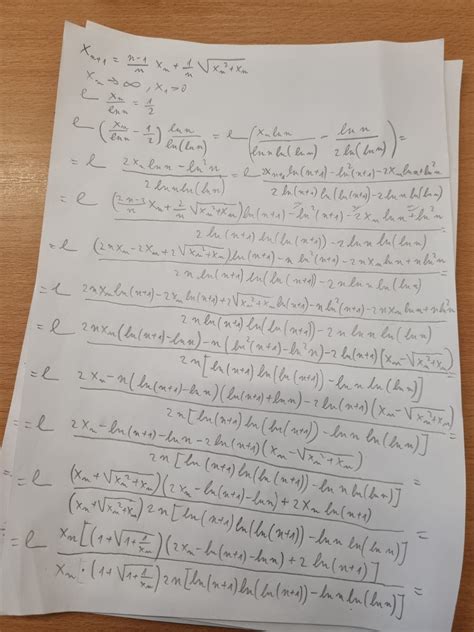 x_{n+1} = \frac{n-1}{n} x_n + \frac{1}{n} \sqrt{x_n^2 + x_n}
x_n → ∞, x_1 > 0
l \frac{x_n}{ln n} = \frac{1}{2}
l (\frac{x_n}{ln n} - \frac{1}{2}) \frac{ln n}{ln(ln n)} = l (\frac{x_n ln n}{ln n ln(ln n)} - \frac{ln n}{2 ln(ln n)}) =
= l \frac{2x_n ln n - ln^2 n}{2 ln n ln(ln n)} = l \frac{2x_{n+1} ln(n+1) - ln^2(n+1) - 2x_n ln n + ln^2 n}{2 ln(n+1) ln(ln(n+1)) - 2 ln n ln(ln n)}
= l \frac{(\frac{2n-2}{n} x_n + \frac{2}{n} \sqrt{x_n^2 + x_n}) ln(n+1) - ln^2(n+1) - 2x_n ln n + ln^2 n}{2 ln(n+1) ln(ln(n+1)) - 2 ln n ln(ln n)} =
= l \frac{(2n x_n - 2x_n + 2\sqrt{x_n^2 + x_n}) ln(n+1) - n ln^2(n+1) - 2n x_n ln n + n ln^2 n}{2n ln(n+1) ln(ln(n+1)) - 2n ln n ln(ln n)}
= l \frac{2n x_n ln(n+1) - 2x_n ln(n+1) + 2\sqrt{x_n^2 + x_n} ln(n+1) - n ln^2(n+1) - 2n x_n ln n + n ln^2 n}{2n ln(n+1) ln(ln(n+1)) - 2n ln n ln(ln n)}
= l \frac{2n x_n (ln(n+1) - ln n) - n(ln^2(n+1) - ln^2 n) - 2 ln(n+1)(x_n - \sqrt{x_n^2 + x_n})}{2n [ln(n+1) ln(ln(n+1)) - ln n ln(ln n)]}
= l \frac{2x_n - n(ln(n+1) - ln n)(ln(n+1) + ln n) - 2 ln(n+1)(x_n - \sqrt{x_n^2 + x_n})}{2n [ln(n+1) ln(ln(n+1)) - ln n ln(ln n)]} =
= l \frac{2x_n - ln(n+1) - ln n - 2 ln(n+1)(x_n - \sqrt{x_n^2 + x_n})}{2n [ln(n+1) ln(ln(n+1)) - ln n ln(ln n)]} =
= l \frac{(x_n + \sqrt{x_n^2 + x_n})(2x_n - ln(n+1) - ln n) + 2x_n ln(n+1)}{(x_n + \sqrt{x_n^2 + x_n}) 2n [ln(n+1) ln(ln(n+1)) - ln n ln(ln n)]} =
= l \frac{x_n [(1 + \sqrt{1 + \frac{1}{x_n}})(2x_n - ln(n+1) - ln n) + 2 ln(n+1)]}{x_n · (1 + \sqrt{1 + \frac{1}{x_n}}) 2n [ln(n+1) ln(ln(n+1)) - ln n ln(ln n)]} =